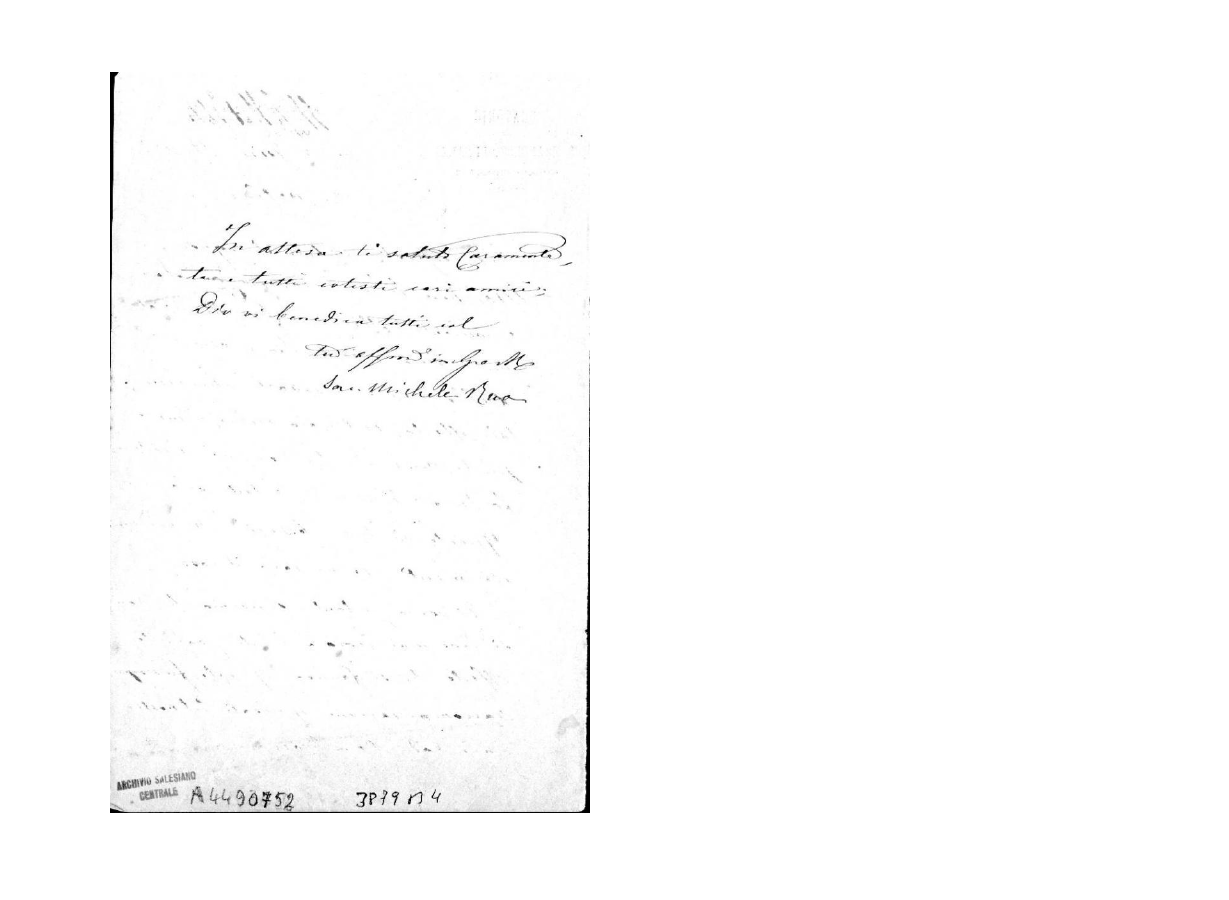 In attesa ti saluto caramente,
te e tutti cotesti cari amici;
Dio vi benedica tutti col
tuo affmo in G. e M.
Sac. Michele Rua
ARCHIVIO SALESIANO
CENTRALE
A4490752 3879 B 4